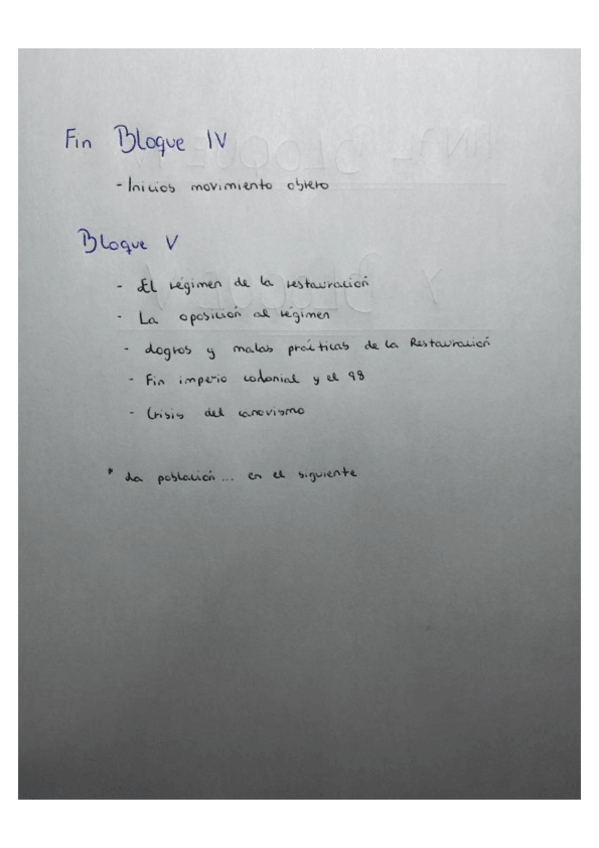 Fin Bloque IV
- Inicios movimiento obrero
Bloque V
- El régimen de la restauración
- La oposición al régimen
- Logros y malas prácticas de la Restauración
- Fin imperio colonial y el 98
- Crisis del canovismo
* La población... en el siguiente